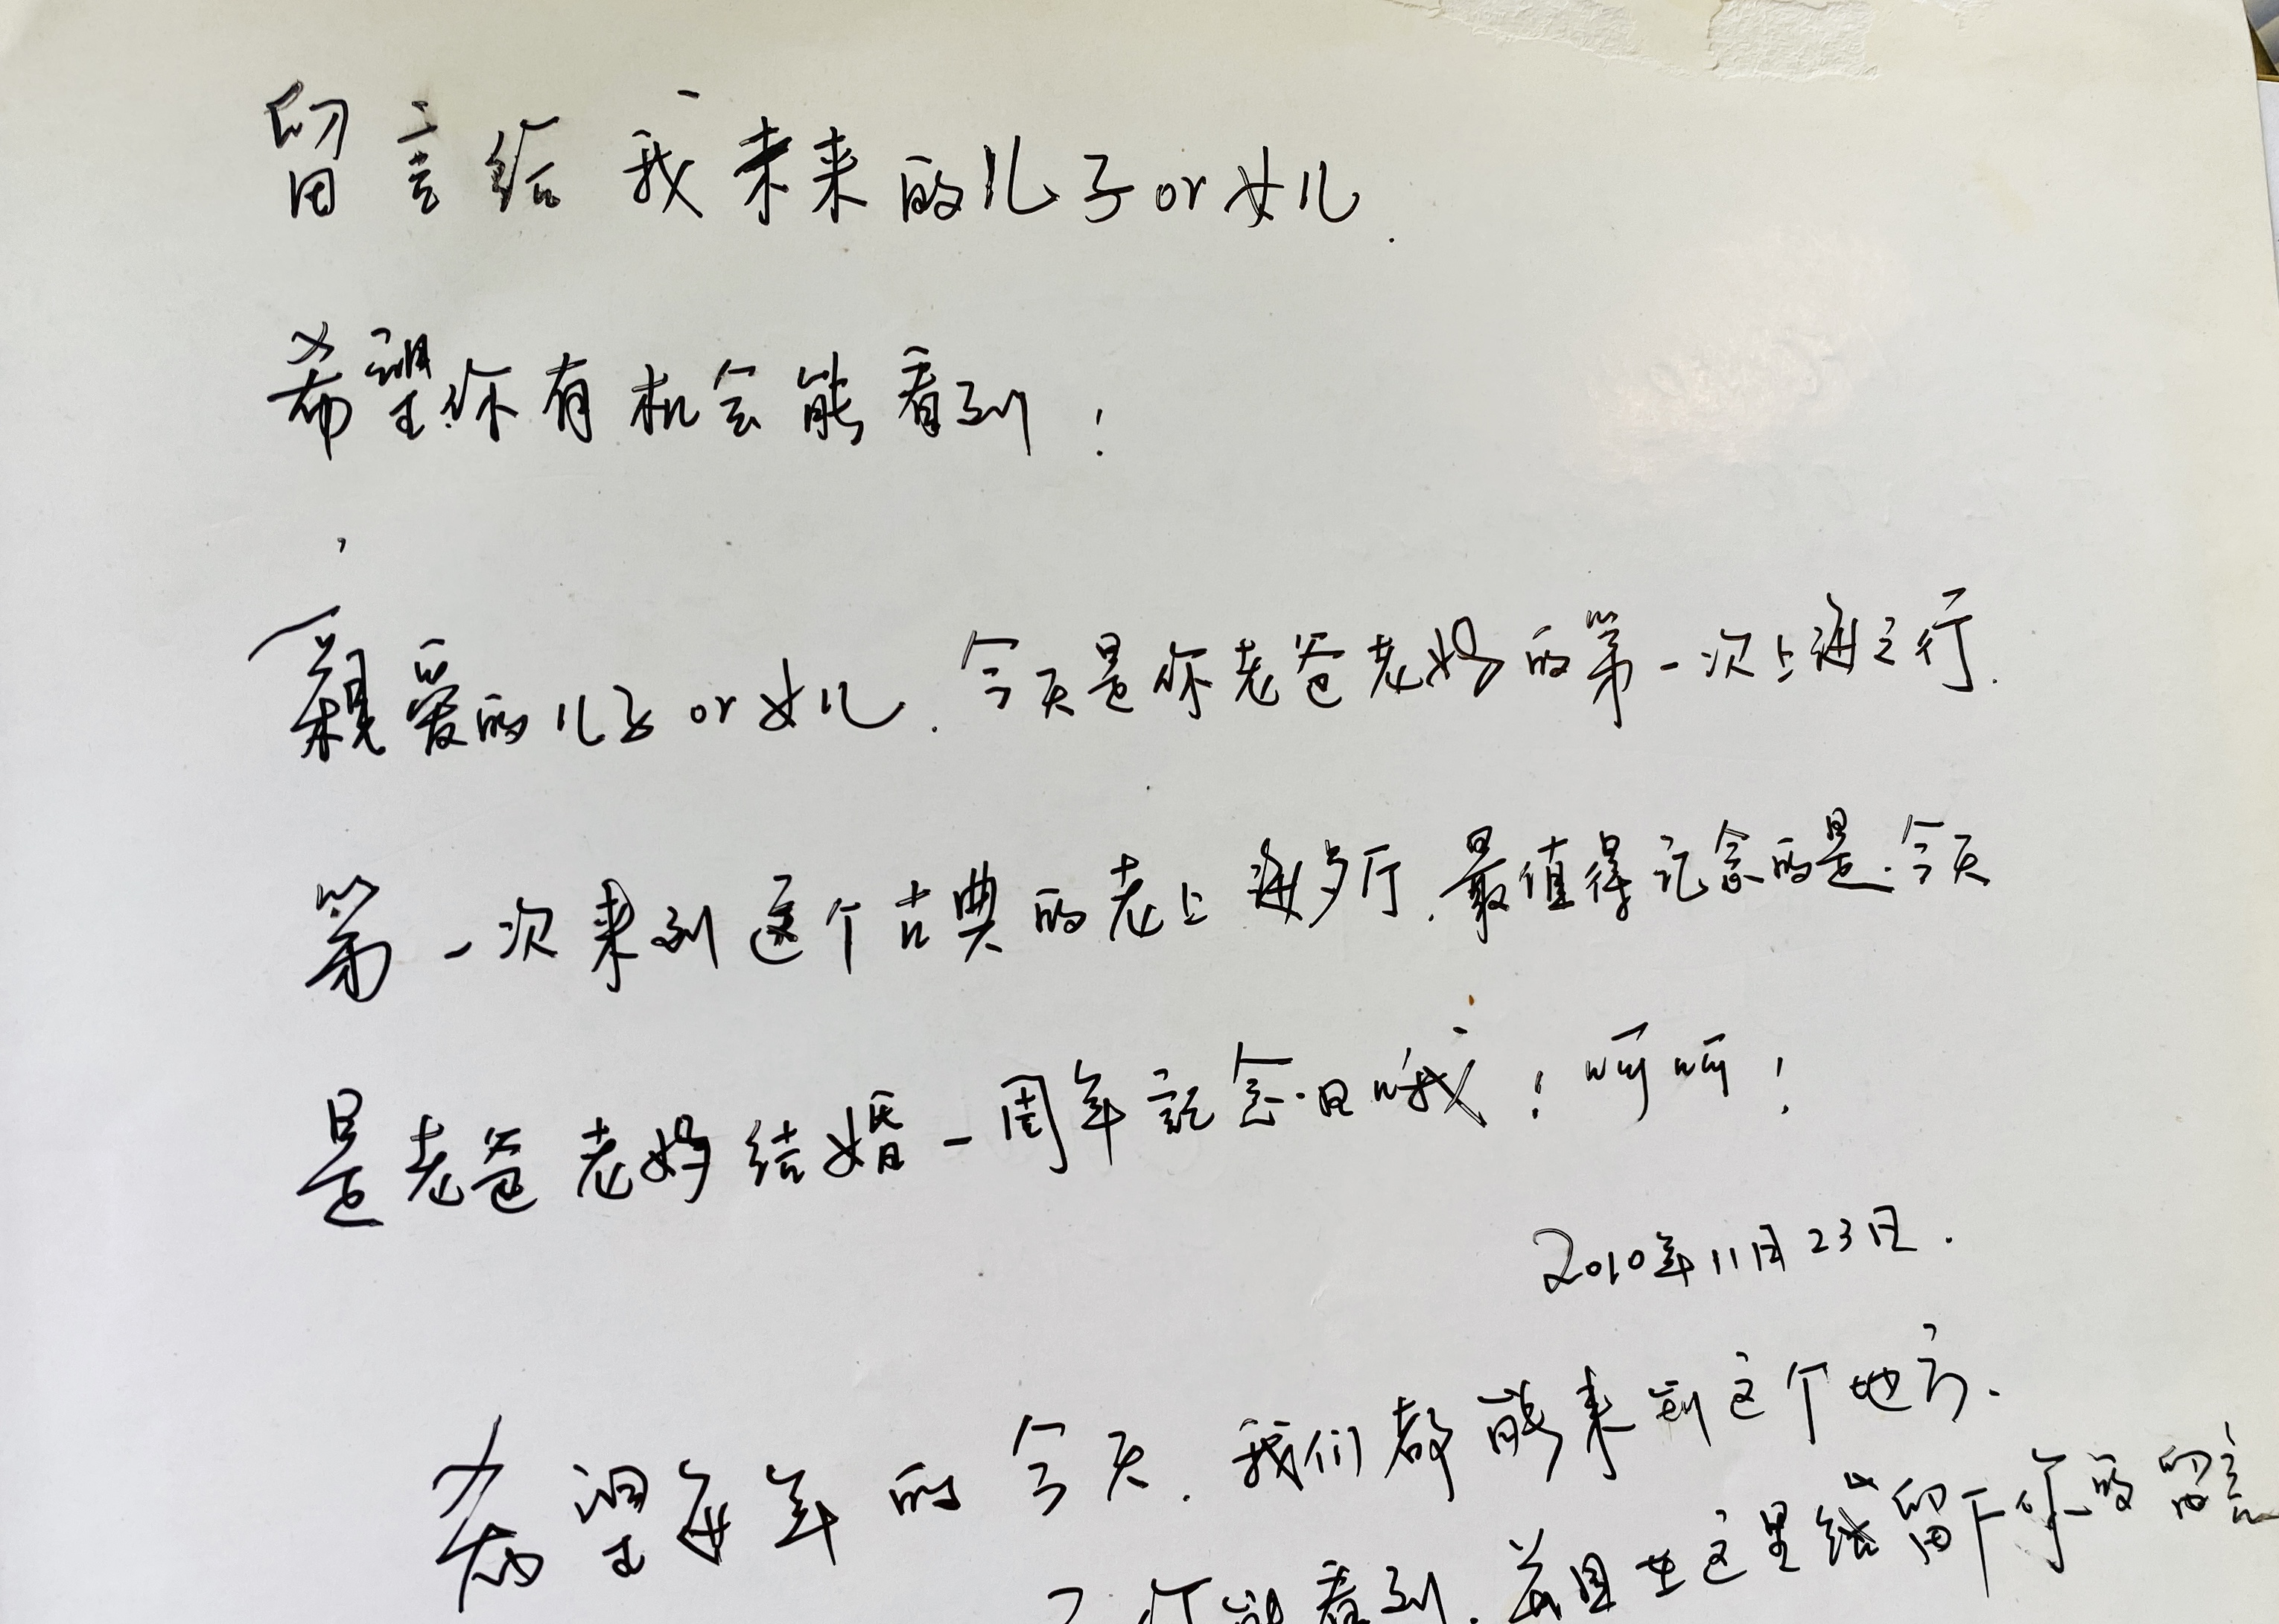 留言给我未来的儿子or女儿.
希望你有机会能看到！
親爱的儿子or女儿.今天是你老爸老妈的第一次上海之行.
第一次来到这个古典的老上海歺厅.最值得记念的是.今天
是老爸老妈结婚一周年記念日哦！呵呵！
2010年11月23日.
希望每年的今天.我们都能来到这个地方.
能看到.并且在这里留下你的留言